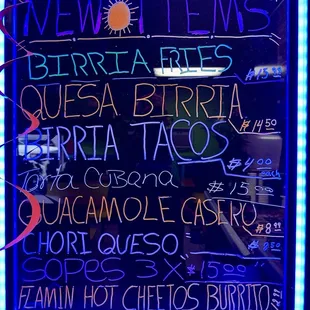 NEW ITEMS
BIRRIA FRIES
$15.99
QUESA BIRRIA
$14.50
BIRRIA TACOS
$4.00
each
Torta Cubana
$15.00
GUACAMOLE CASERO
$8.99
CHORI QUESO
SOPES 3X $15.00
FLAMIN HOT CHEETOS BURRITO